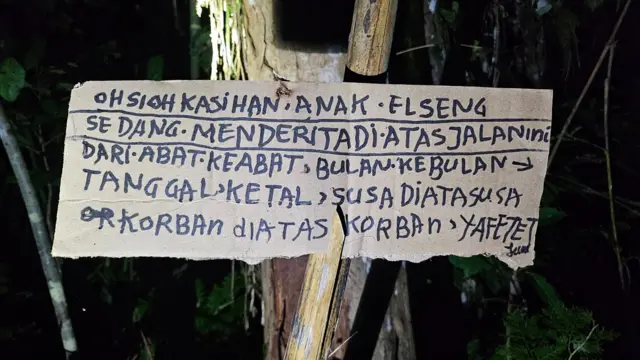 OH SIOH KASIHAN. ANAK. ELSENG
SEDANG. MENDERITA DI. ATAS JALAN ini
DARI. ABAT. KEABAT, BULAN. KEBULAN →
TANGGAL, KETAL, SUSA DIATASUSA
KORBAN dIATAS KORBAN, YAFETET